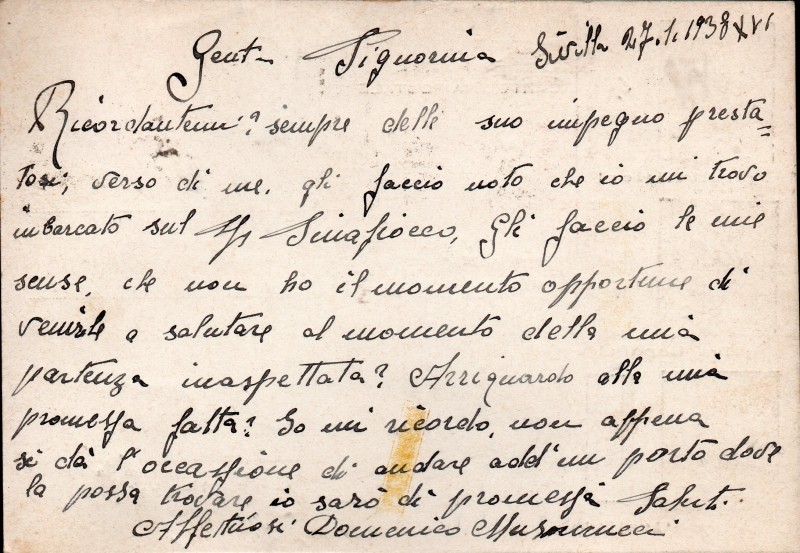 Gent. Signorina Sivilla 27.1.1938 XVI
Ricordantemi? sempre delli suo impegno presta=
tosi, verso di me. gli faccio noto che io mi trovo
imbarcato sul Gli faccio le mie
scuse, che non ho il momento opportune di
venirle a salutare al momento della mia
partenza inaspettata? Arriguardo alla mia
promessa fatta? Io mi ricordo, non appena
si dà l'occassione di andare add'un porto dove
la possa trovare io sarò di promessa Saluti.
Affettuosi Domenico